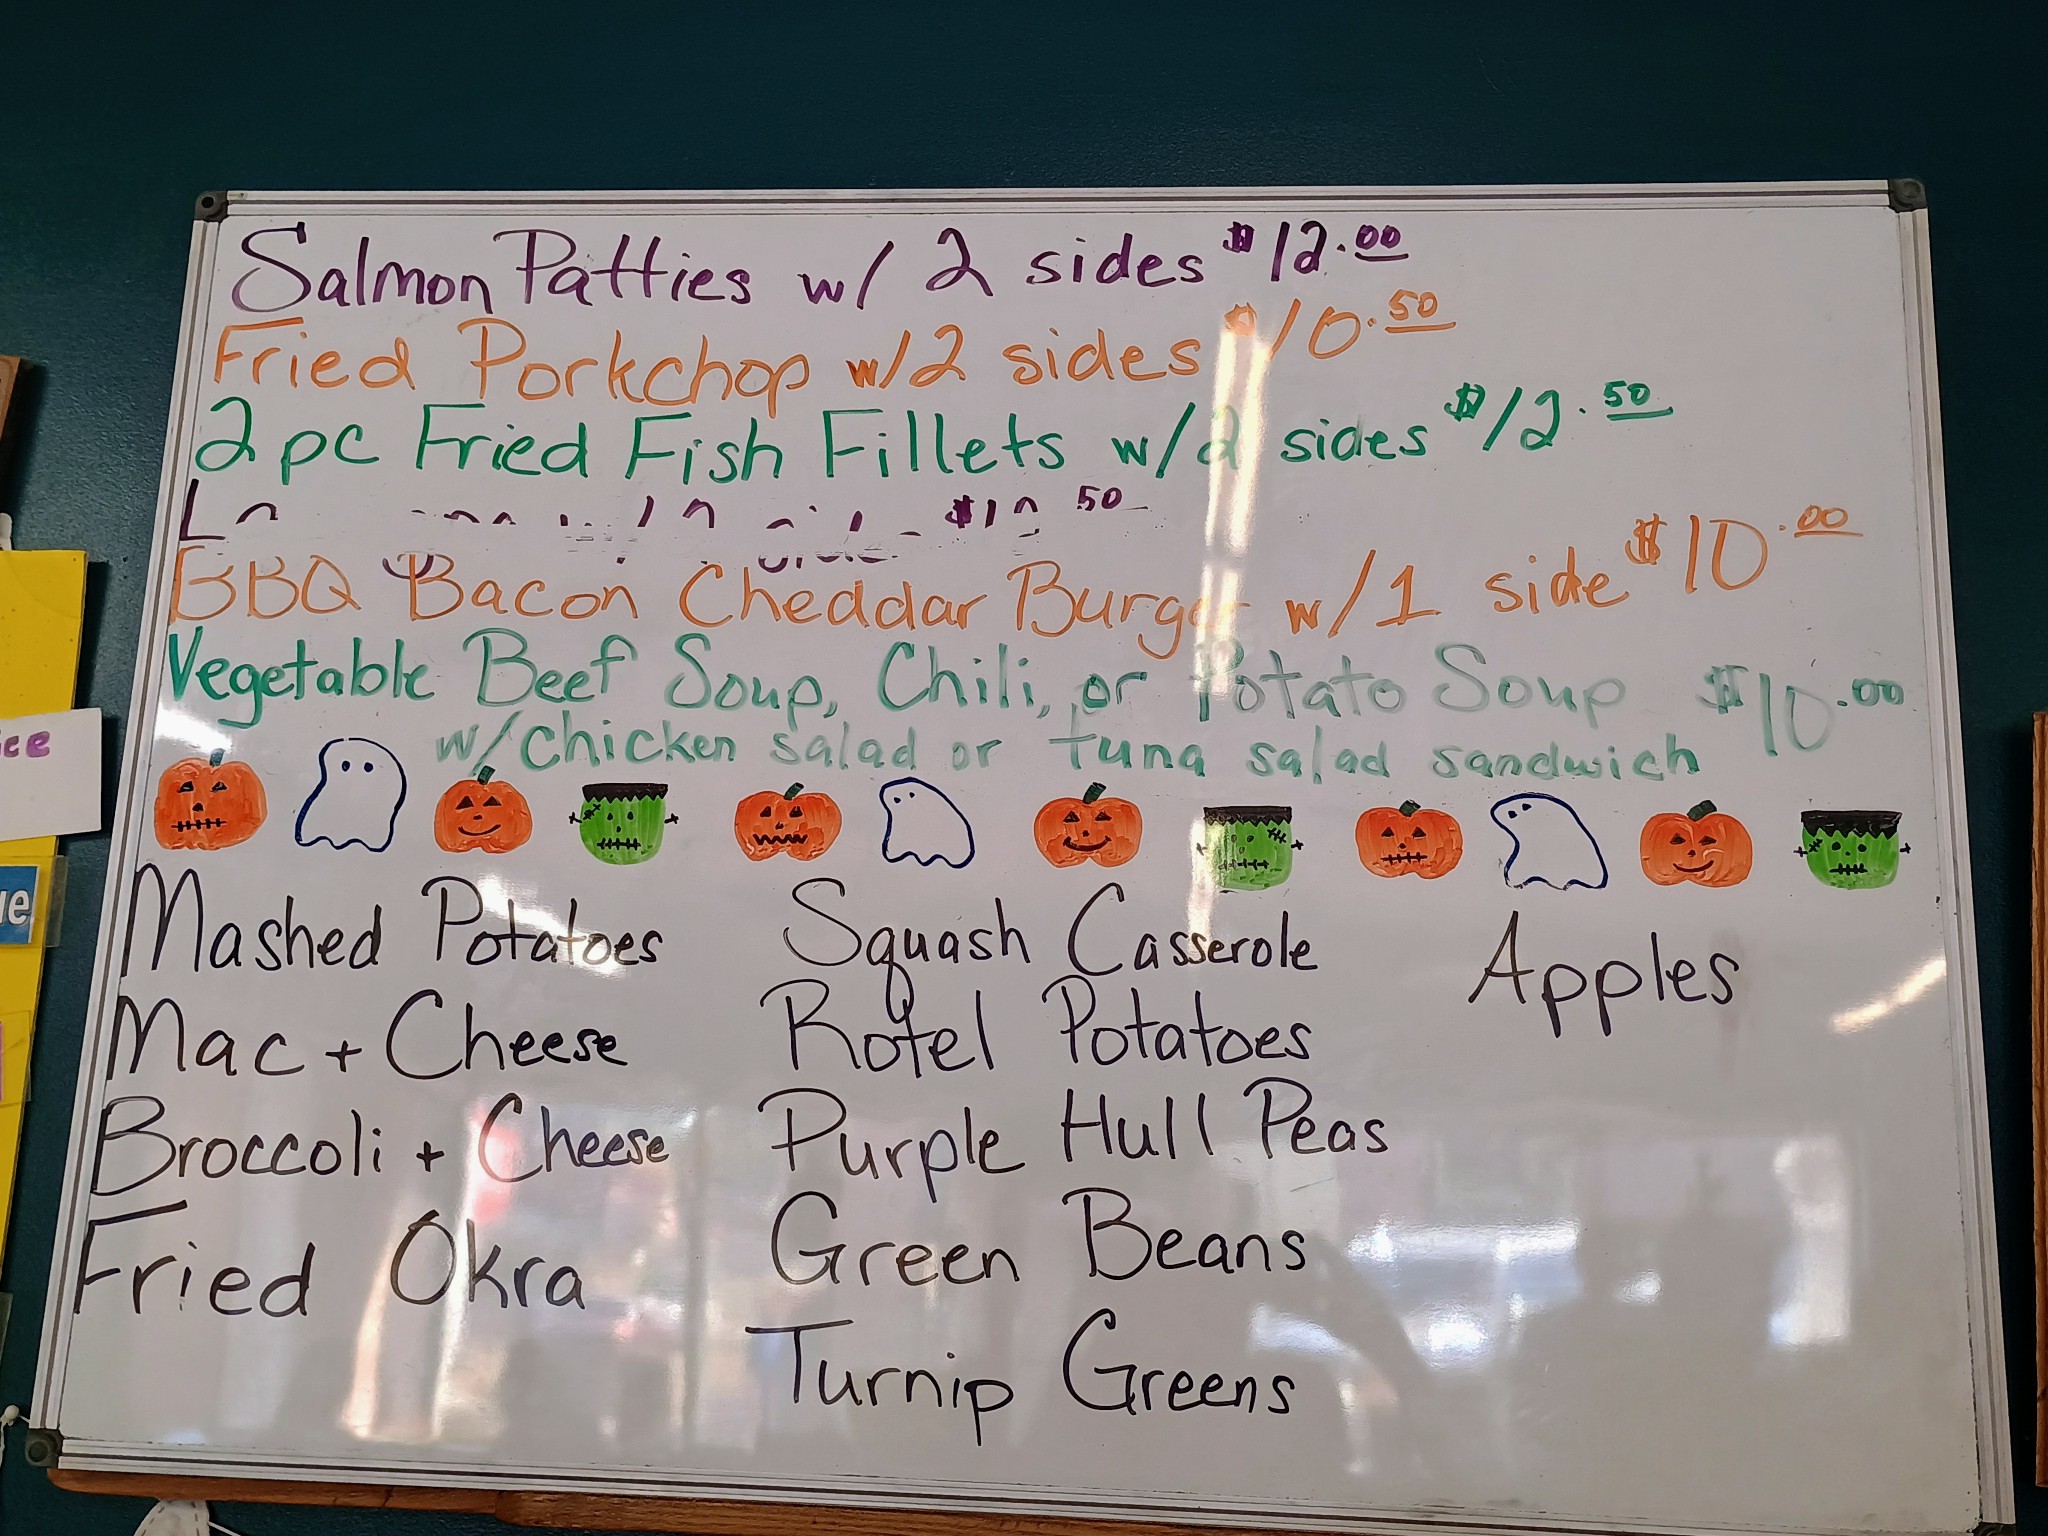 Salmon Patties w/ 2 sides $12.00
Fried Porkchop w/2 sides $10.50
2pc Fried Fish Fillets w/2 sides $12.50
50
BBQ Bacon Cheddar Burger w/1 side $10.00
Vegetable Beef Soup, Chili, or Potato Soup $10.00
w/chicken salad or tuna salad sandwich
Mashed Potatoes
Mac + Cheese
Broccoli + Cheese
Fried Okra
Squash Casserole
Rotel Potatoes
Purple Hull Peas
Green Beans
Turnip Greens
Apples